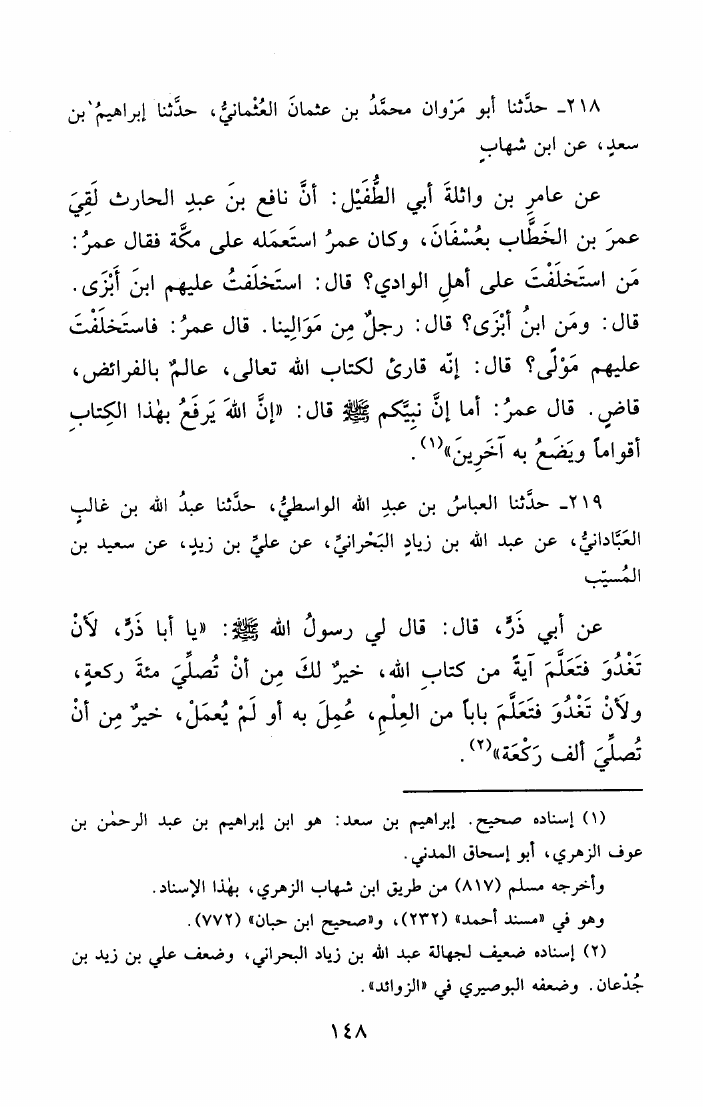 ٢١٨ـ حدَّثنا أبو مَرْوان محمَّدُ بن عثمانَ العُثْمانيُّ، حدَّثنا إبراهيمُ بن
سعدٍ، عن ابن شهابٍ
عن عامرِ بن واثلةَ أبي الطُّفَيْل: أنَّ نافع بنَ عبدِ الحارث لَقِيَ
عمرَ بن الخَطَّاب بعُسْفَانَ، وكان عمرُ استَعمَله على مكَّة فقال عمرُ:
مَن استَخلَفْتَ على أهلِ الوادي؟ قال: استَخلَفتُ عليهم ابنَ أَبْزَى.
قال: ومَن ابنُ أبْزَى؟ قال: رجلٌ مِن مَوَالِينا. قال عمرُ: فاستَخلَفْتَ
عليهم مَوْلًى؟ قال: إنّه قارئ لكتاب الله تعالى، عالمٌ بالفرائض،
قاضٍ. قال عمرُ: أما إنَّ نبيَّكم ﷺ قال: «إنَّ اللهَ يَرفَعُ بهٰذا الكِتابِ
أقواماً ويَضَعُ به آخَرِينَ»(١).
٢١٩ـ حدَّثنا العباسُ بن عبدِ الله الواسطيُّ، حدَّثنا عبدُ الله بن غالبٍ
العَبَّادانيُّ، عن عبد الله بن زيادٍ البَحْرانيِّ، عن عليِّ بن زيدٍ، عن سعيد بن
المُسيّب
عن أبي ذَرٍّ، قال: قال لي رسولُ الله ﷺ: «يا أبا ذَرٍّ، لَأنْ
تَغْدُوَ فتَعَلَّمَ آيةً من كتابِ الله، خيرٌ لكَ مِن أنْ تُصلِّيَ مئةَ ركعةٍ،
ولَأنْ تَغْدُوَ فتَعَلَّمَ باباً من العِلْمِ، عُمِلَ به أو لَمْ يُعمَلْ، خيرٌ مِن أنْ
تُصلِّيَ ألف رَكْعَة»(٢).
(١) إسناده صحيح. إبراهيم بن سعد: هو ابن إبراهيم بن عبد الرحمٰن بن
عوف الزهري، أبو إسحاق المدني.
وأخرجه مسلم (٨١٧) من طريق ابن شهاب الزهري، بهٰذا الإسناد.
وهو في «مسند أحمد» (٢٣٢)، و«صحيح ابن حبان» (٧٧٢).
(٢) إسناده ضعيف لجهالة عبد الله بن زياد البحراني، وضعف علي بن زيد بن
جُدْعان. وضعفه البوصيري في «الزوائد».
١٤٨